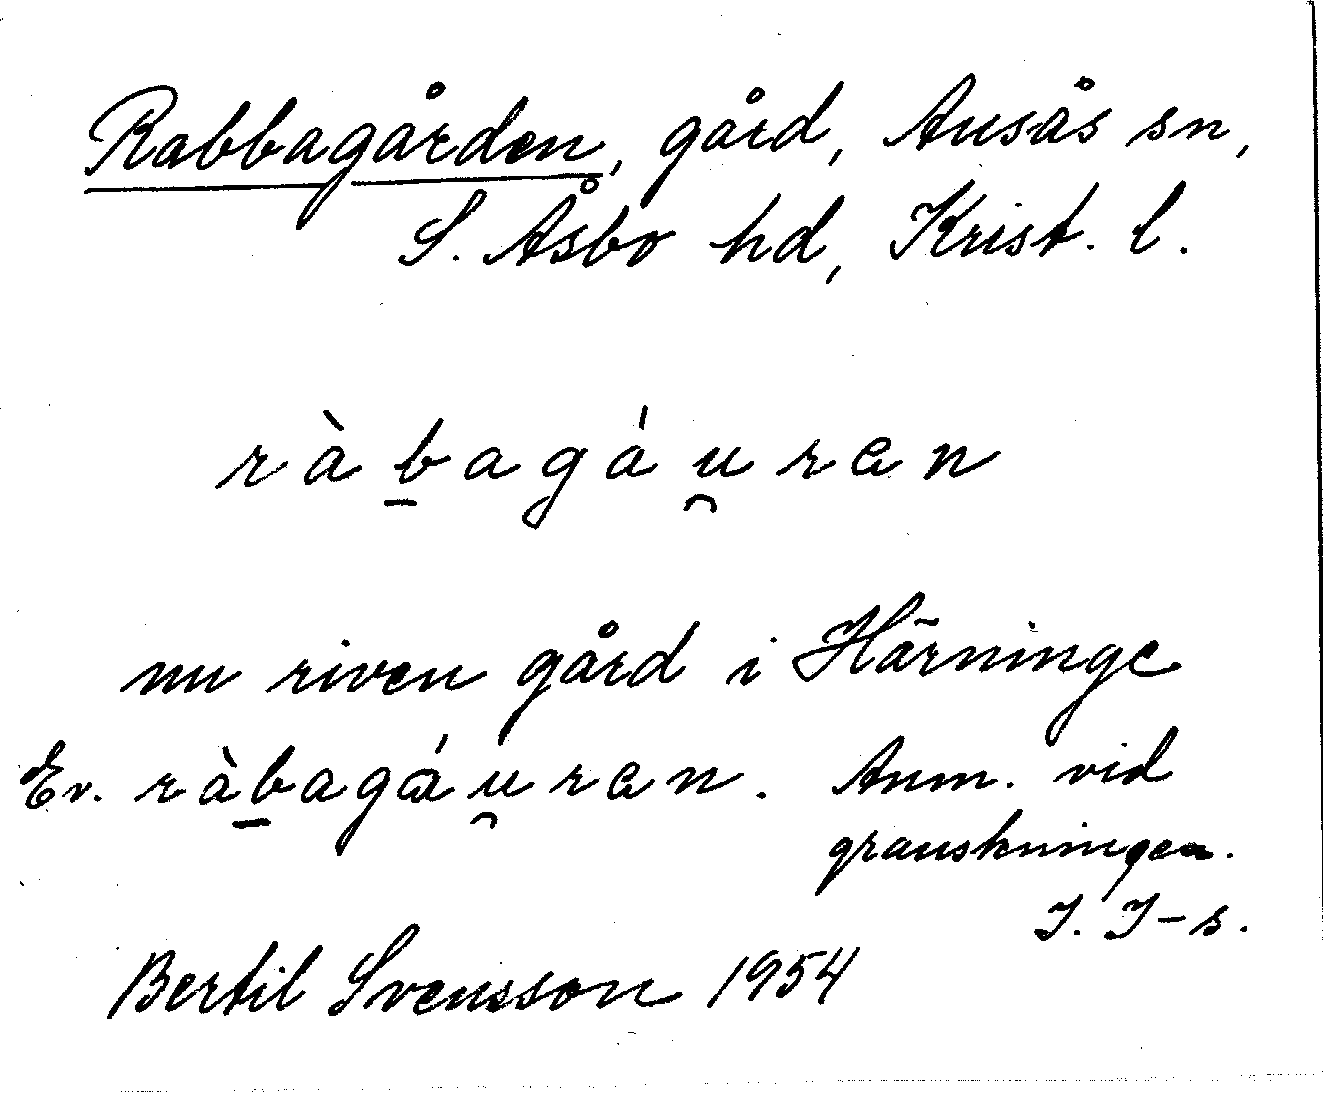 Rabbagården, gård, Ausås sn,
S. Åsbo hd, Krist. l.
ràb̲agáu̯rɐn
nu riven gård i Härninge
Ev. ràb̲agɑ́u̯rɐn. Anm. vid
granskningen.
I. I-s.
Bertil Svensson 1954